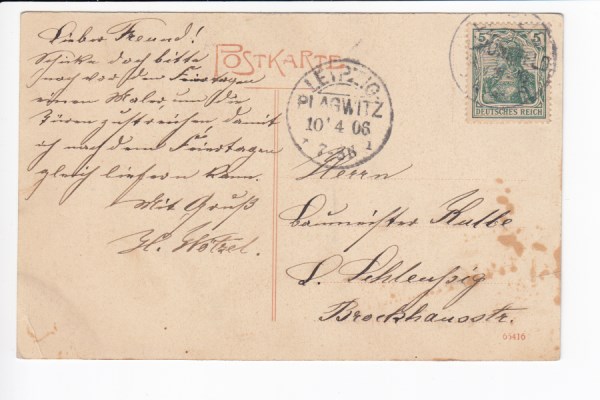 Lieber Freund!
Schicke doch bitte
noch vor den Feiertagen
einen Maler, um die
Türen zu streichen damit
ich nach dem Feiertagen
gleich liefern kann.
Mit Gruß
H. Wötzel.
POSTKARTE
LEIPZIG
PLAGWITZ
10 4 06
7-8N
5 5
DEUTSCHES REICH
Herrn
Baumeister Kalbe
L. Schleußig
Brockhausstr.